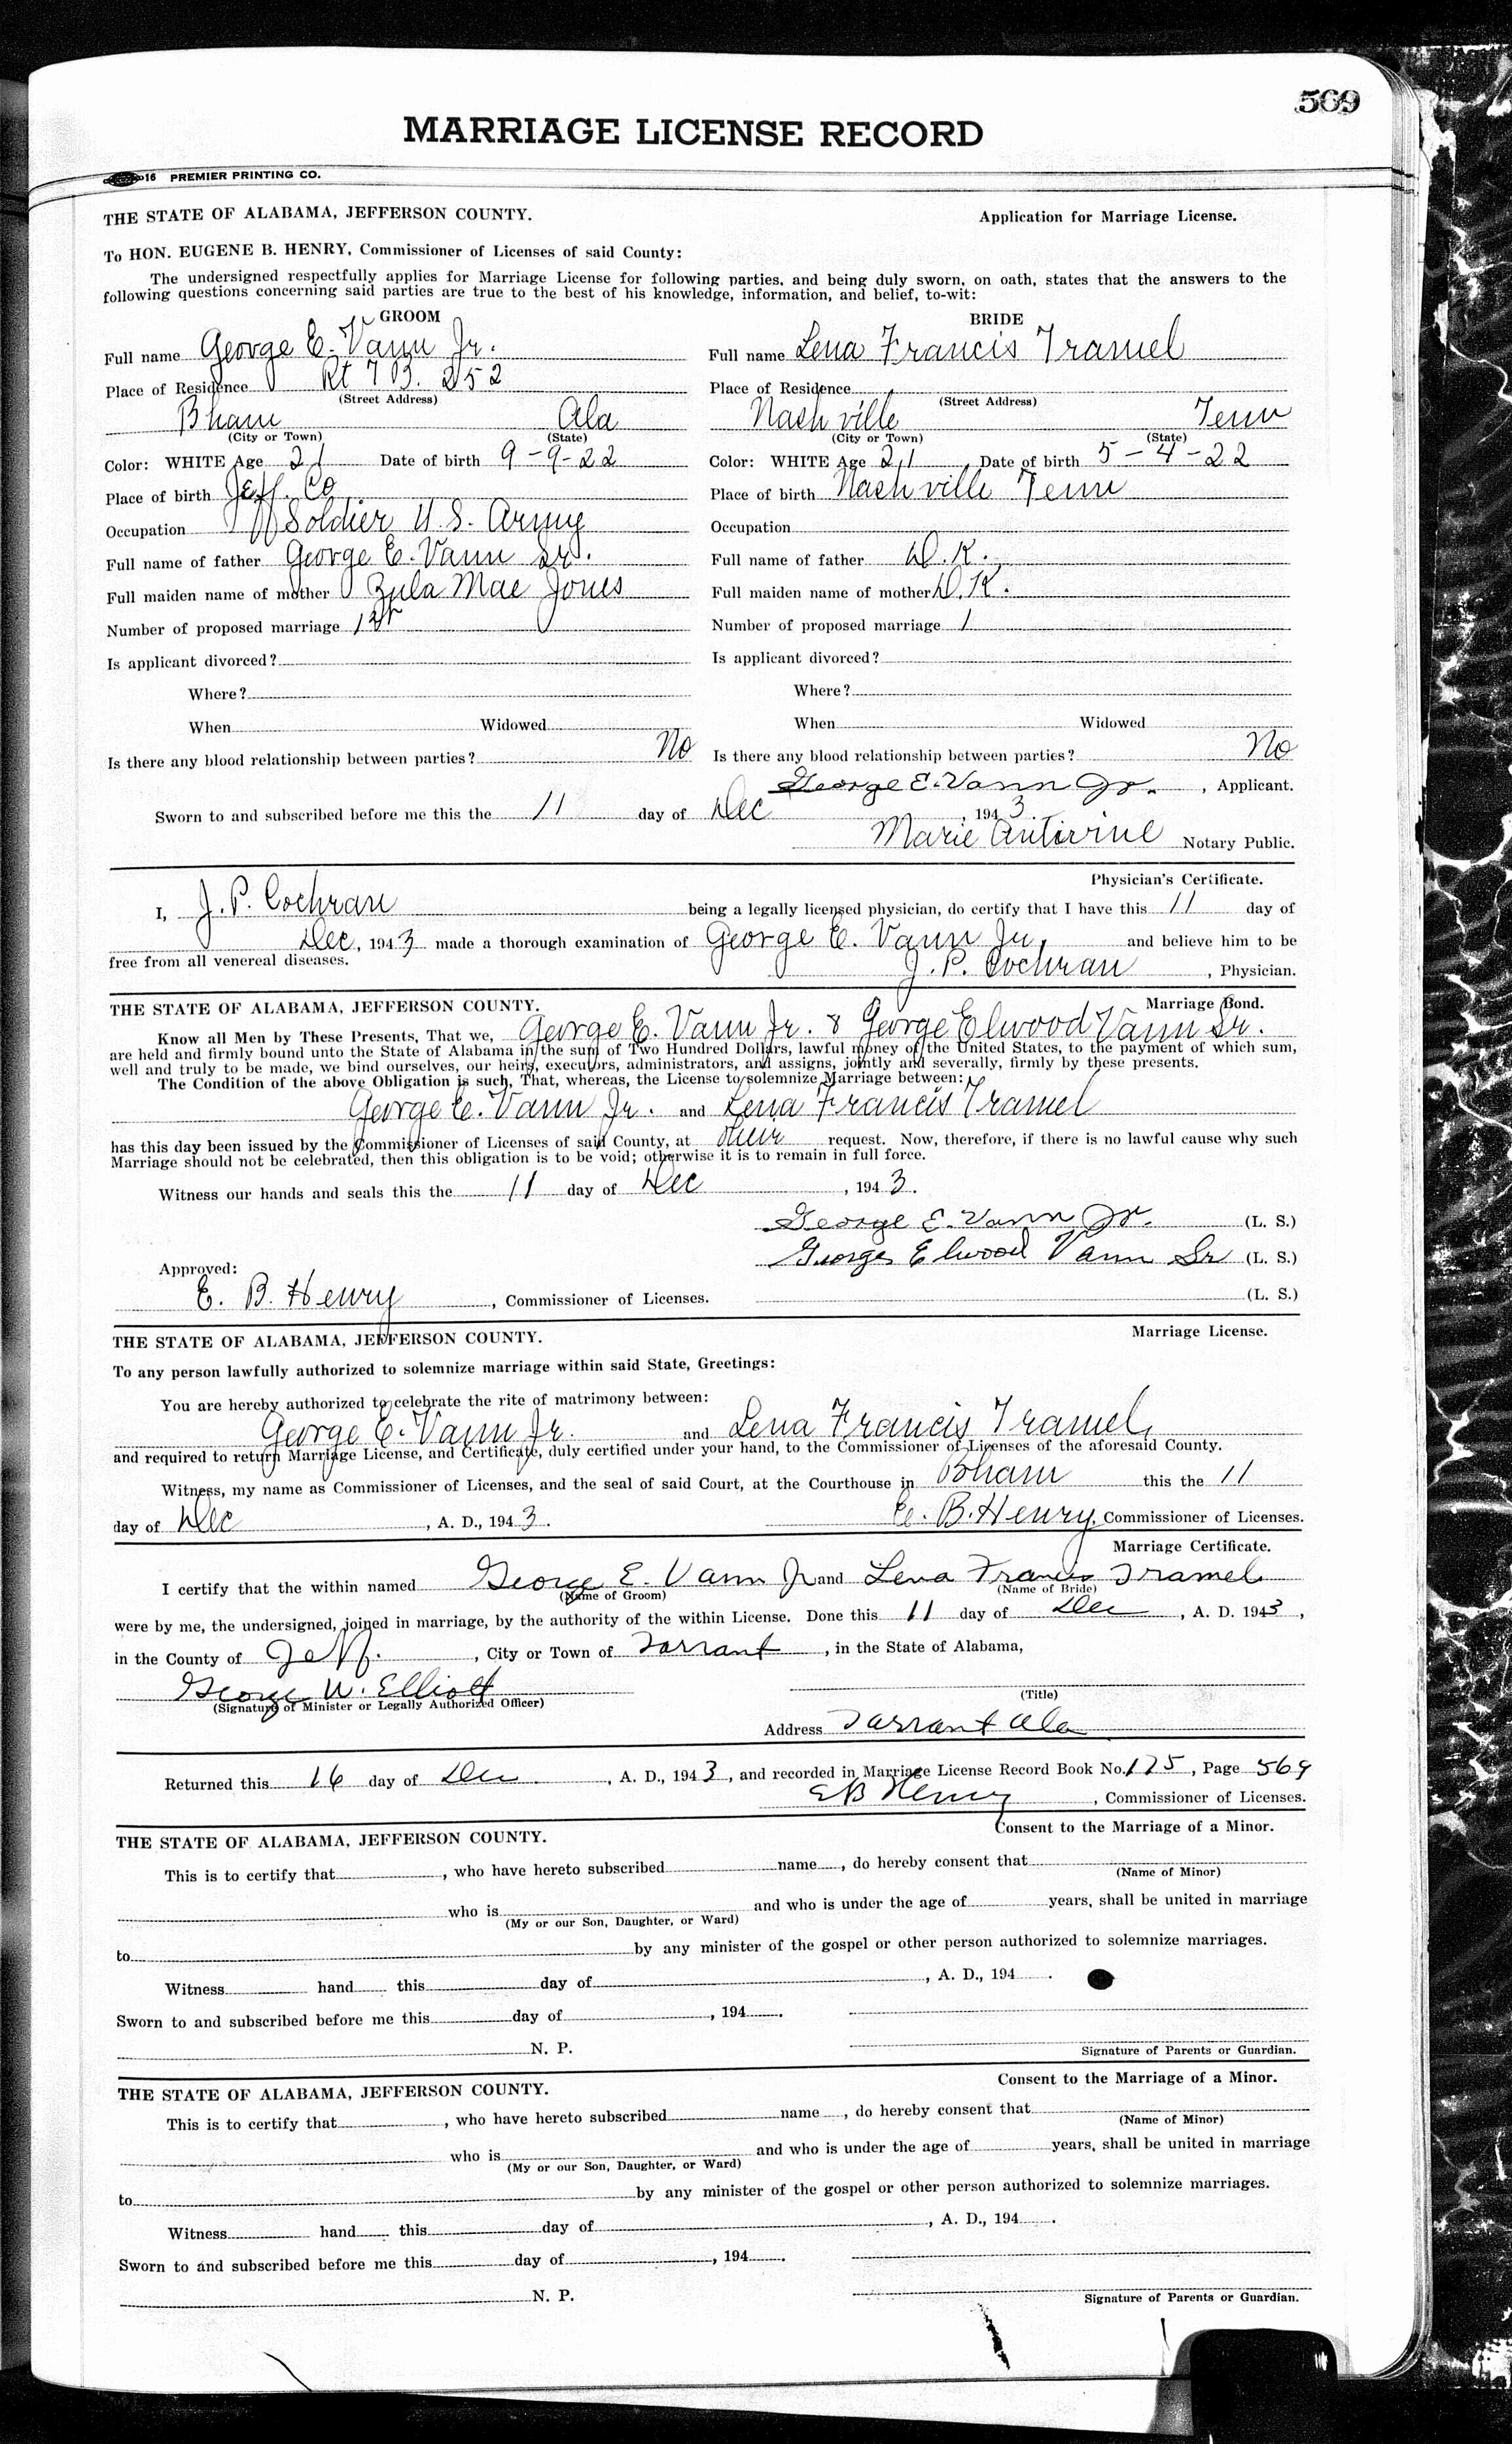 569
MARRIAGE LICENSE RECORD
16 PREMIER PRINTING CO.
THE STATE OF ALABAMA, JEFFERSON COUNTY. Application for Marriage License.
To HON. EUGENE B. HENRY, Commissioner of Licenses of said County:
The undersigned respectfully applies for Marriage License for following parties, and being duly sworn, on oath, states that the answers to the
following questions concerning said parties are true to the best of his knowledge, information, and belief, to-wit:
GROOM
Full name George E. Vann Jr.
Place of Residence Rt 7 B. 252
(Street Address)
Bham Ala
(City or Town) (State)
Color: WHITE Age 21 Date of birth 9-9-22
Place of birth Jeff. Co
Occupation Soldier U.S. Army
Full name of father George E. Vann Sr.
Full maiden name of mother Zula Mae Jones
Number of proposed marriage 1st
Is applicant divorced?
Where?
When Widowed
Is there any blood relationship between parties? No
BRIDE
Full name Lena Francis Tramel
Place of Residence
(Street Address)
Nashville Tenn
(City or Town) (State)
Color: WHITE Age 21 Date of birth 5-4-22
Place of birth Nashville Tenn
Occupation
Full name of father D.K.
Full maiden name of mother D.K.
Number of proposed marriage 1
Is applicant divorced?
Where?
When Widowed
Is there any blood relationship between parties? No
George E. Vann Jr., Applicant.
Sworn to and subscribed before me this the 11 day of Dec, 1943.
Marie Notary Public.
Physician's Certificate.
I, J. P. Cochran being a legally licensed physician, do certify that I have this 11 day of
Dec, 1943 made a thorough examination of George E. Vann Jr. and believe him to be
free from all venereal diseases.
J. P. Cochran, Physician.
THE STATE OF ALABAMA, JEFFERSON COUNTY. Marriage Bond.
Know all Men by These Presents, That we, George E. Vann Jr. & George Elwood Vann Sr.
are held and firmly bound unto the State of Alabama in the sum of Two Hundred Dollars, lawful money of the United States, to the payment of which sum,
well and truly to be made, we bind ourselves, our heirs, executors, administrators, and assigns, jointly and severally, firmly by these presents.
The Condition of the above Obligation is such, That, whereas, the License to solemnize Marriage between:
George E. Vann Jr. and Lena Francis Tramel
has this day been issued by the Commissioner of Licenses of said County, at their request. Now, therefore, if there is no lawful cause why such
Marriage should not be celebrated, then this obligation is to be void; otherwise it is to remain in full force.
Witness our hands and seals this the 11 day of Dec, 1943.
George E. Vann Jr. (L. S.)
George Elwood Vann Sr (L. S.)
Approved:
E. B. Henry, Commissioner of Licenses. (L. S.)
THE STATE OF ALABAMA, JEFFERSON COUNTY. Marriage License.
To any person lawfully authorized to solemnize marriage within said State, Greetings:
You are hereby authorized to celebrate the rite of matrimony between:
George E. Vann Jr. and Lena Francis Tramel,
and required to return Marriage License, and Certificate, duly certified under your hand, to the Commissioner of Licenses of the aforesaid County.
Witness, my name as Commissioner of Licenses, and the seal of said Court, at the Courthouse in Bham this the 11
day of Dec, A. D., 1943. E. B. Henry, Commissioner of Licenses.
Marriage Certificate.
I certify that the within named George E. Vann Jr and Lena Francis Tramel
(Name of Groom) (Name of Bride)
were by me, the undersigned, joined in marriage, by the authority of the within License. Done this 11 day of Dec, A. D. 1943,
in the County of Jeff., City or Town of Tarrant, in the State of Alabama,
George W. Elliott
(Signature of Minister or Legally Authorized Officer) (Title)
Address Tarrant Ala
Returned this 16 day of Dec, A. D., 1943, and recorded in Marriage License Record Book No. 175, Page 569
E B Henry, Commissioner of Licenses.
THE STATE OF ALABAMA, JEFFERSON COUNTY. Consent to the Marriage of a Minor.
This is to certify that, who have hereto subscribed name, do hereby consent that
(Name of Minor)
who is and who is under the age of years, shall be united in marriage
(My or our Son, Daughter, or Ward)
to by any minister of the gospel or other person authorized to solemnize marriages.
Witness hand this day of, A. D., 194.
Sworn to and subscribed before me this day of, 194.
N. P. Signature of Parents or Guardian.
THE STATE OF ALABAMA, JEFFERSON COUNTY. Consent to the Marriage of a Minor.
This is to certify that, who have hereto subscribed name, do hereby consent that
(Name of Minor)
who is and who is under the age of years, shall be united in marriage
(My or our Son, Daughter, or Ward)
to by any minister of the gospel or other person authorized to solemnize marriages.
Witness hand this day of, A. D., 194.
Sworn to and subscribed before me this day of, 194.
N. P. Signature of Parents or Guardian.